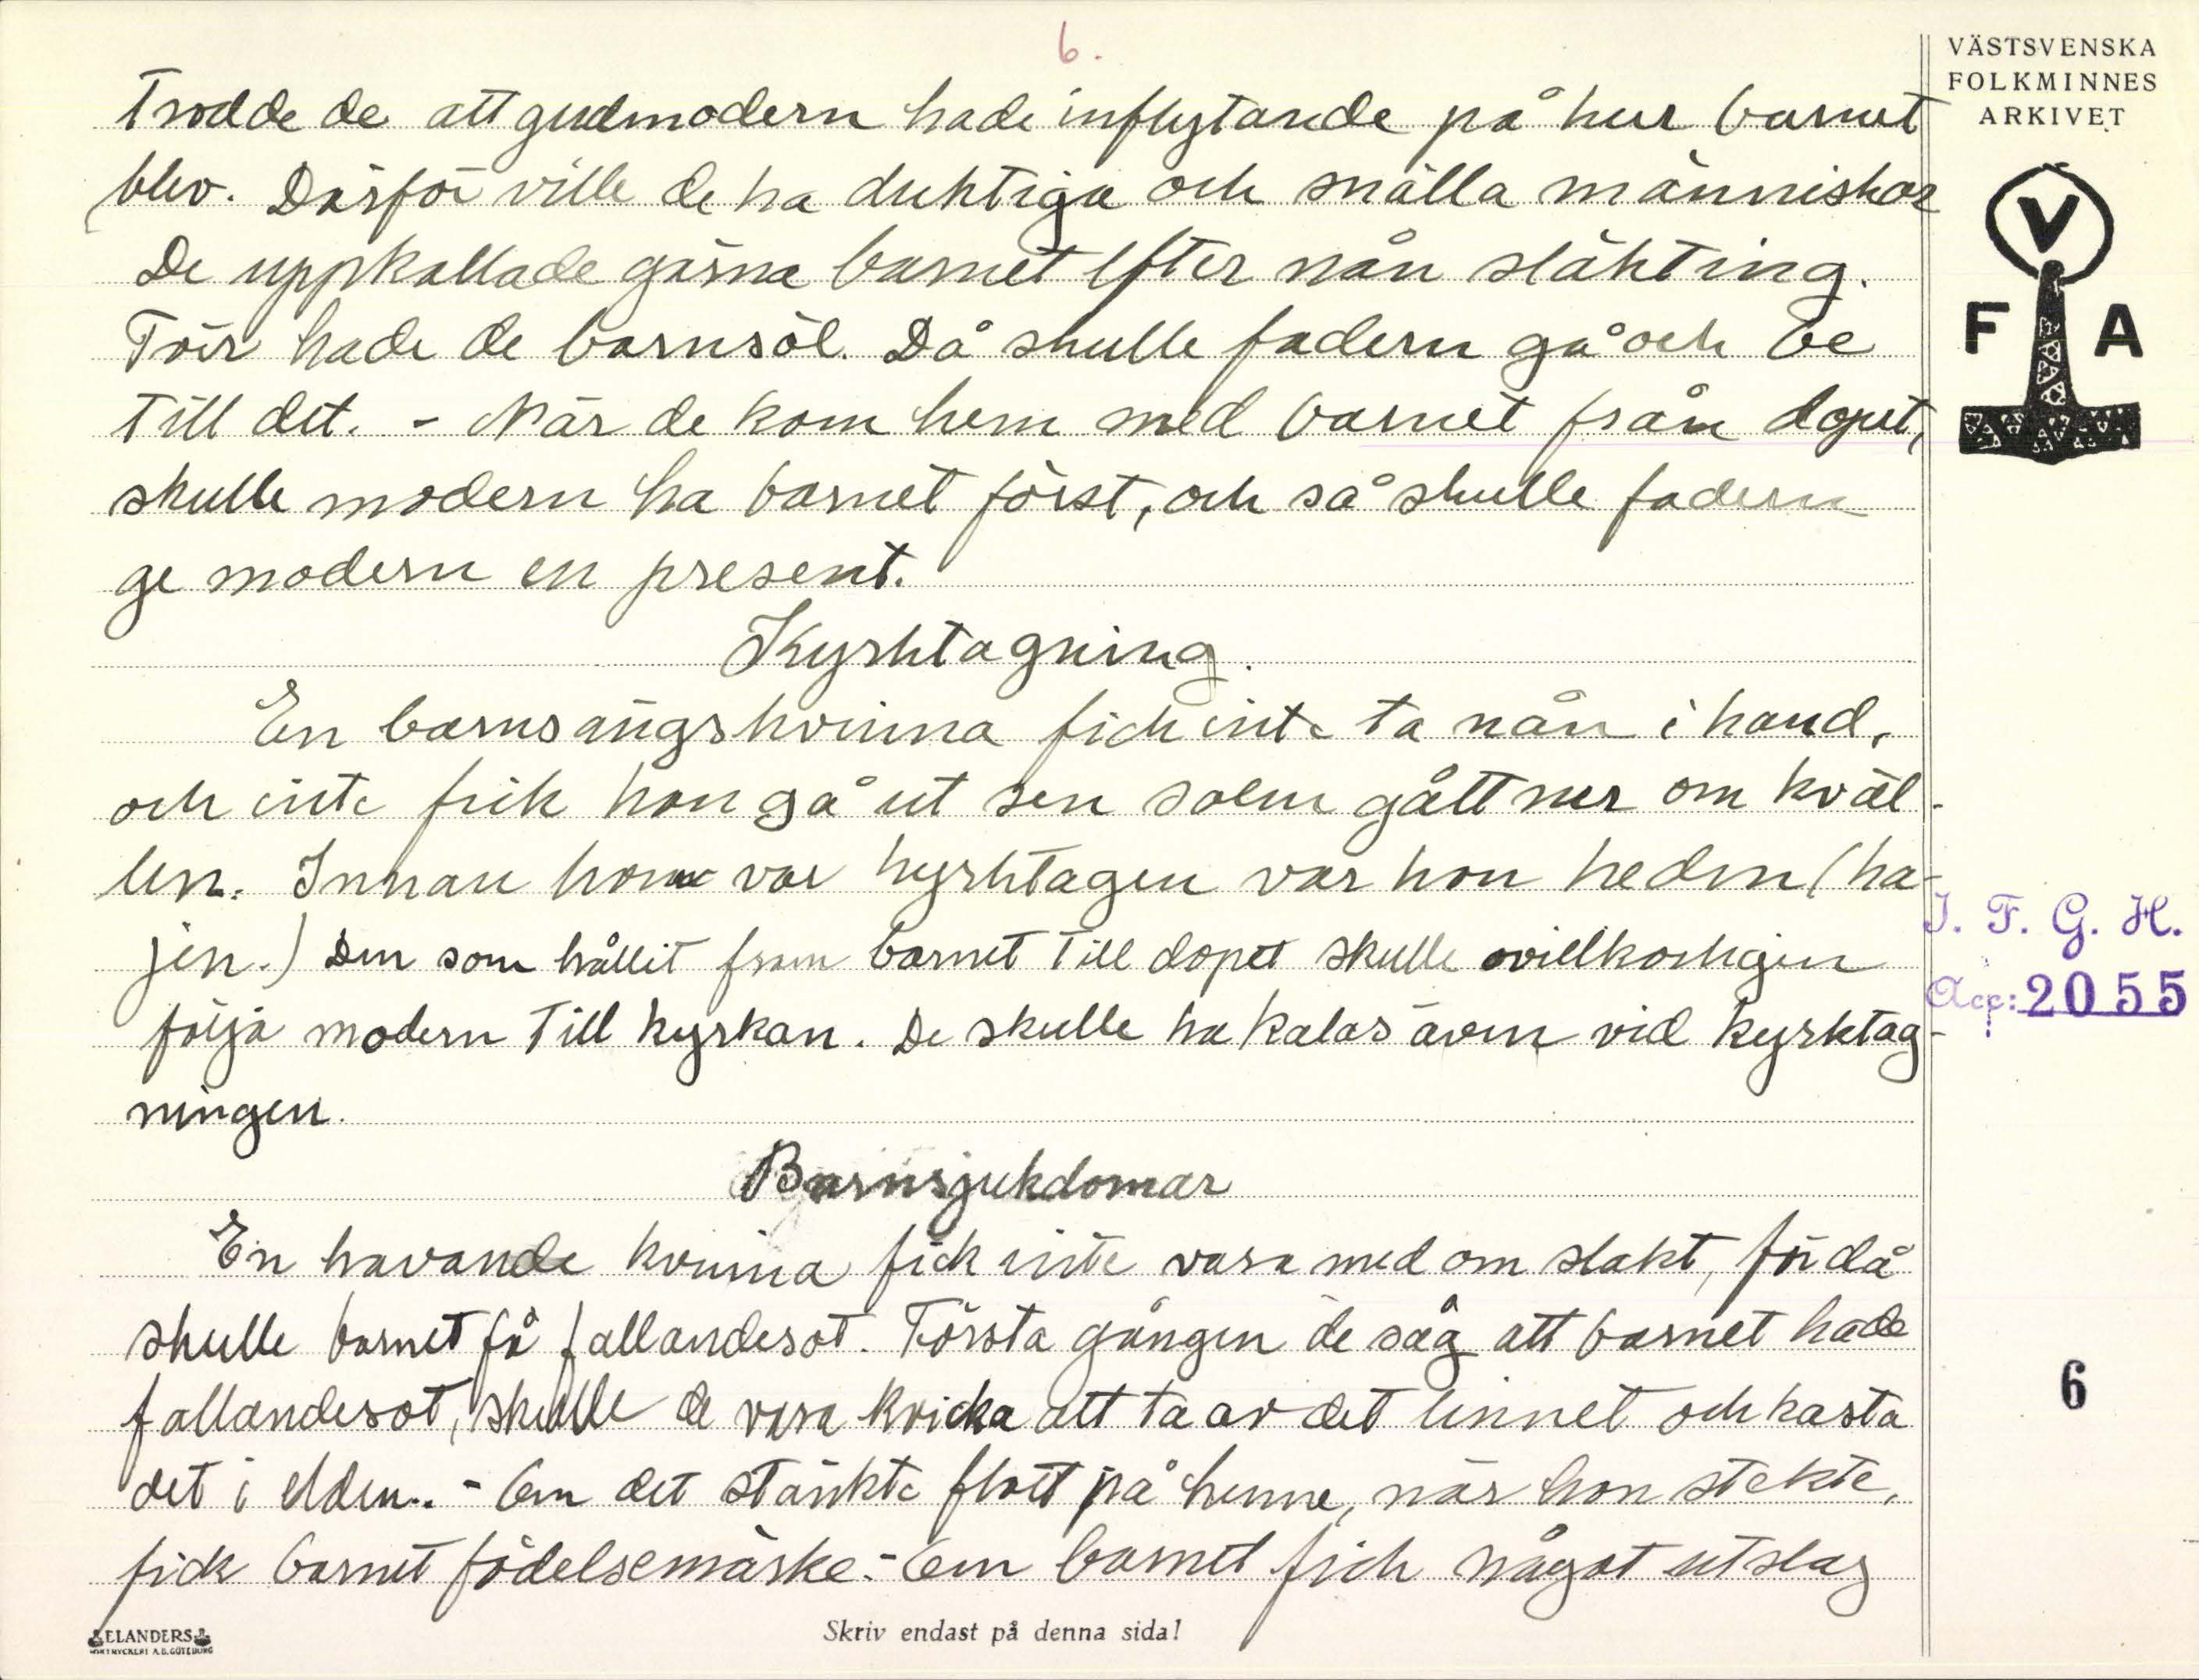 6.
VÄSTSVENSKA
FOLKMINNES
ARKIVET
V
F A
Trodde de att gudmodern hade inflytande på hur barnet
blev. Därför ville de ha duktiga och snälla människor
De uppkallade gärna barnet efter nån släkting.
Förr hade de barnsöl. Då skulle fadern gå och be
till det. - När de kom hem med barnet från dopet,
skulle modern ha barnet först, och så skulle fadern
ge modern en present.
Kyrktagning.
En barnsängskvinna fick inte ta nån i hand,
och inte fick hon gå ut sen solen gått ner om kväl-
len. Innan hon var kyrktagen var hon heden (ha-
jen.) Den som hållit fram barnet till dopet skulle ovillkorligen
följa modern till kyrkan. De skulle ha kalas även vid kyrktag-
ningen.
Barnsjukdomar
En havande kvinna fick inte vara med om slakt, för då
skulle barnet få fallandesot. Första gången de såg att barnet hade
fallandesot, skulle de vara kvicka att ta av det linnet och kasta
det i elden.. - Om det stänkte flott på henne, när hon stekte,
fick barnet födelsemärke. - Om barnet fick något utslag
I. F. G. H.
Acc: 2055
6
ELANDERS
BOKTRYCKERI A.B. GÖTEBORG
Skriv endast på denna sida!